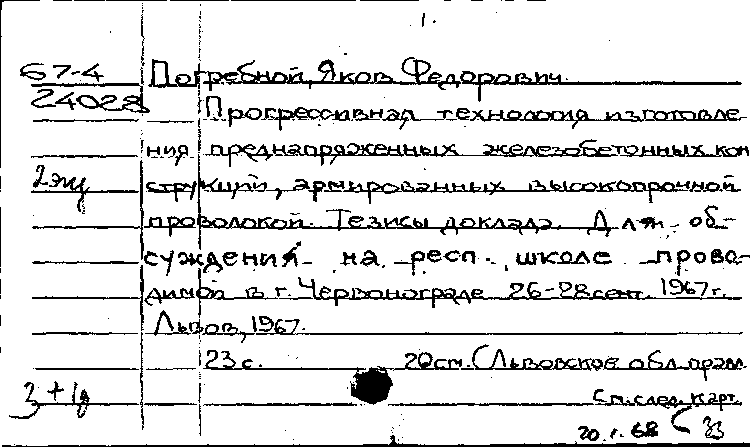 1.
67-4 Погребной, Яков Федорович.
24028 Прогрессивная технология изготовле-
ния преднапряженных железобетонных кон
2 экз струкций, армированных высокопрочной
проволокой. Тезисы доклада. Для об-
суждения на респ. школе прово-
димой в г. Червонограде 26-28 сент. 1967 г.
Львов, 1967.
23 с. 20 см. (Львовское обл. правл.
3+1д См. след. карт.
20.1.68